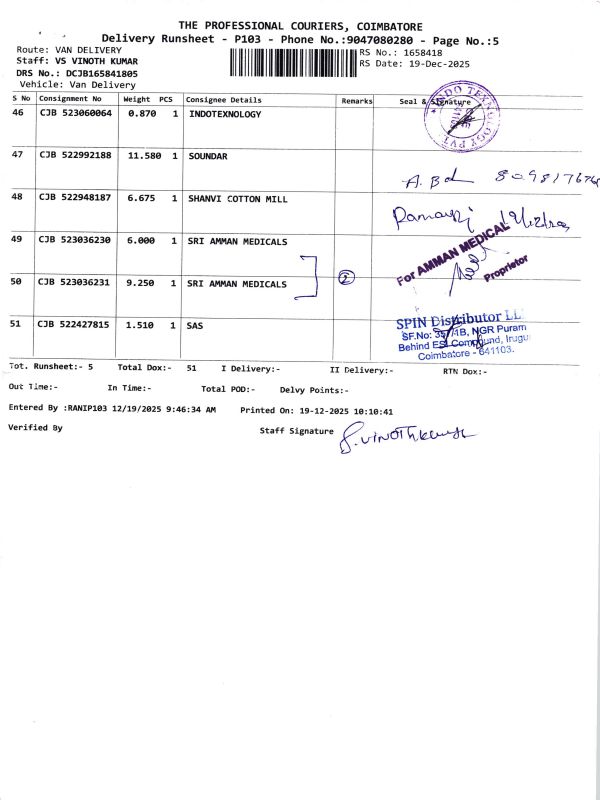 THE PROFESSIONAL COURIERS, COIMBATORE
Delivery Runsheet - P103 - Phone No.:9047080280 - Page No.:5
Route: VAN DELIVERY
RS No.: 1658418
Staff: VS VINOTH KUMAR
RS Date: 19-Dec-2025
DRS No.: DCJB165841805
Vehicle: Van Delivery
S No Consignment No Weight PCS Consignee Details Remarks Seal & Signature
46 CJB 523060064 0.870 1 INDOTEXNOLOGY
47 CJB 522992188 11.580 1 SOUNDAR
A. Bal
48 CJB 522948187 6.675 1 SHANVI COTTON MILL
49 CJB 523036230 6.000 1 SRI AMMAN MEDICALS
For AMMAN MEDICAL
Proprietor
50 CJB 523036231 9.250 1 SRI AMMAN MEDICALS
2
51 CJB 522427815 1.510 1 SAS
SPIN Distributor LL
SF.No: 35/4B, NGR Puram
Behind ESI Compound, Irugu
Coimbatore - 641103.
Tot. Runsheet:- 5 Total Dox:- 51 I Delivery:- II Delivery:- RTN Dox:-
Out Time:- In Time:- Total POD:- Delvy Points:-
Entered By :RANIP103 12/19/2025 9:46:34 AM Printed On: 19-12-2025 10:10:41
Verified By Staff Signature S. Vinothkumar